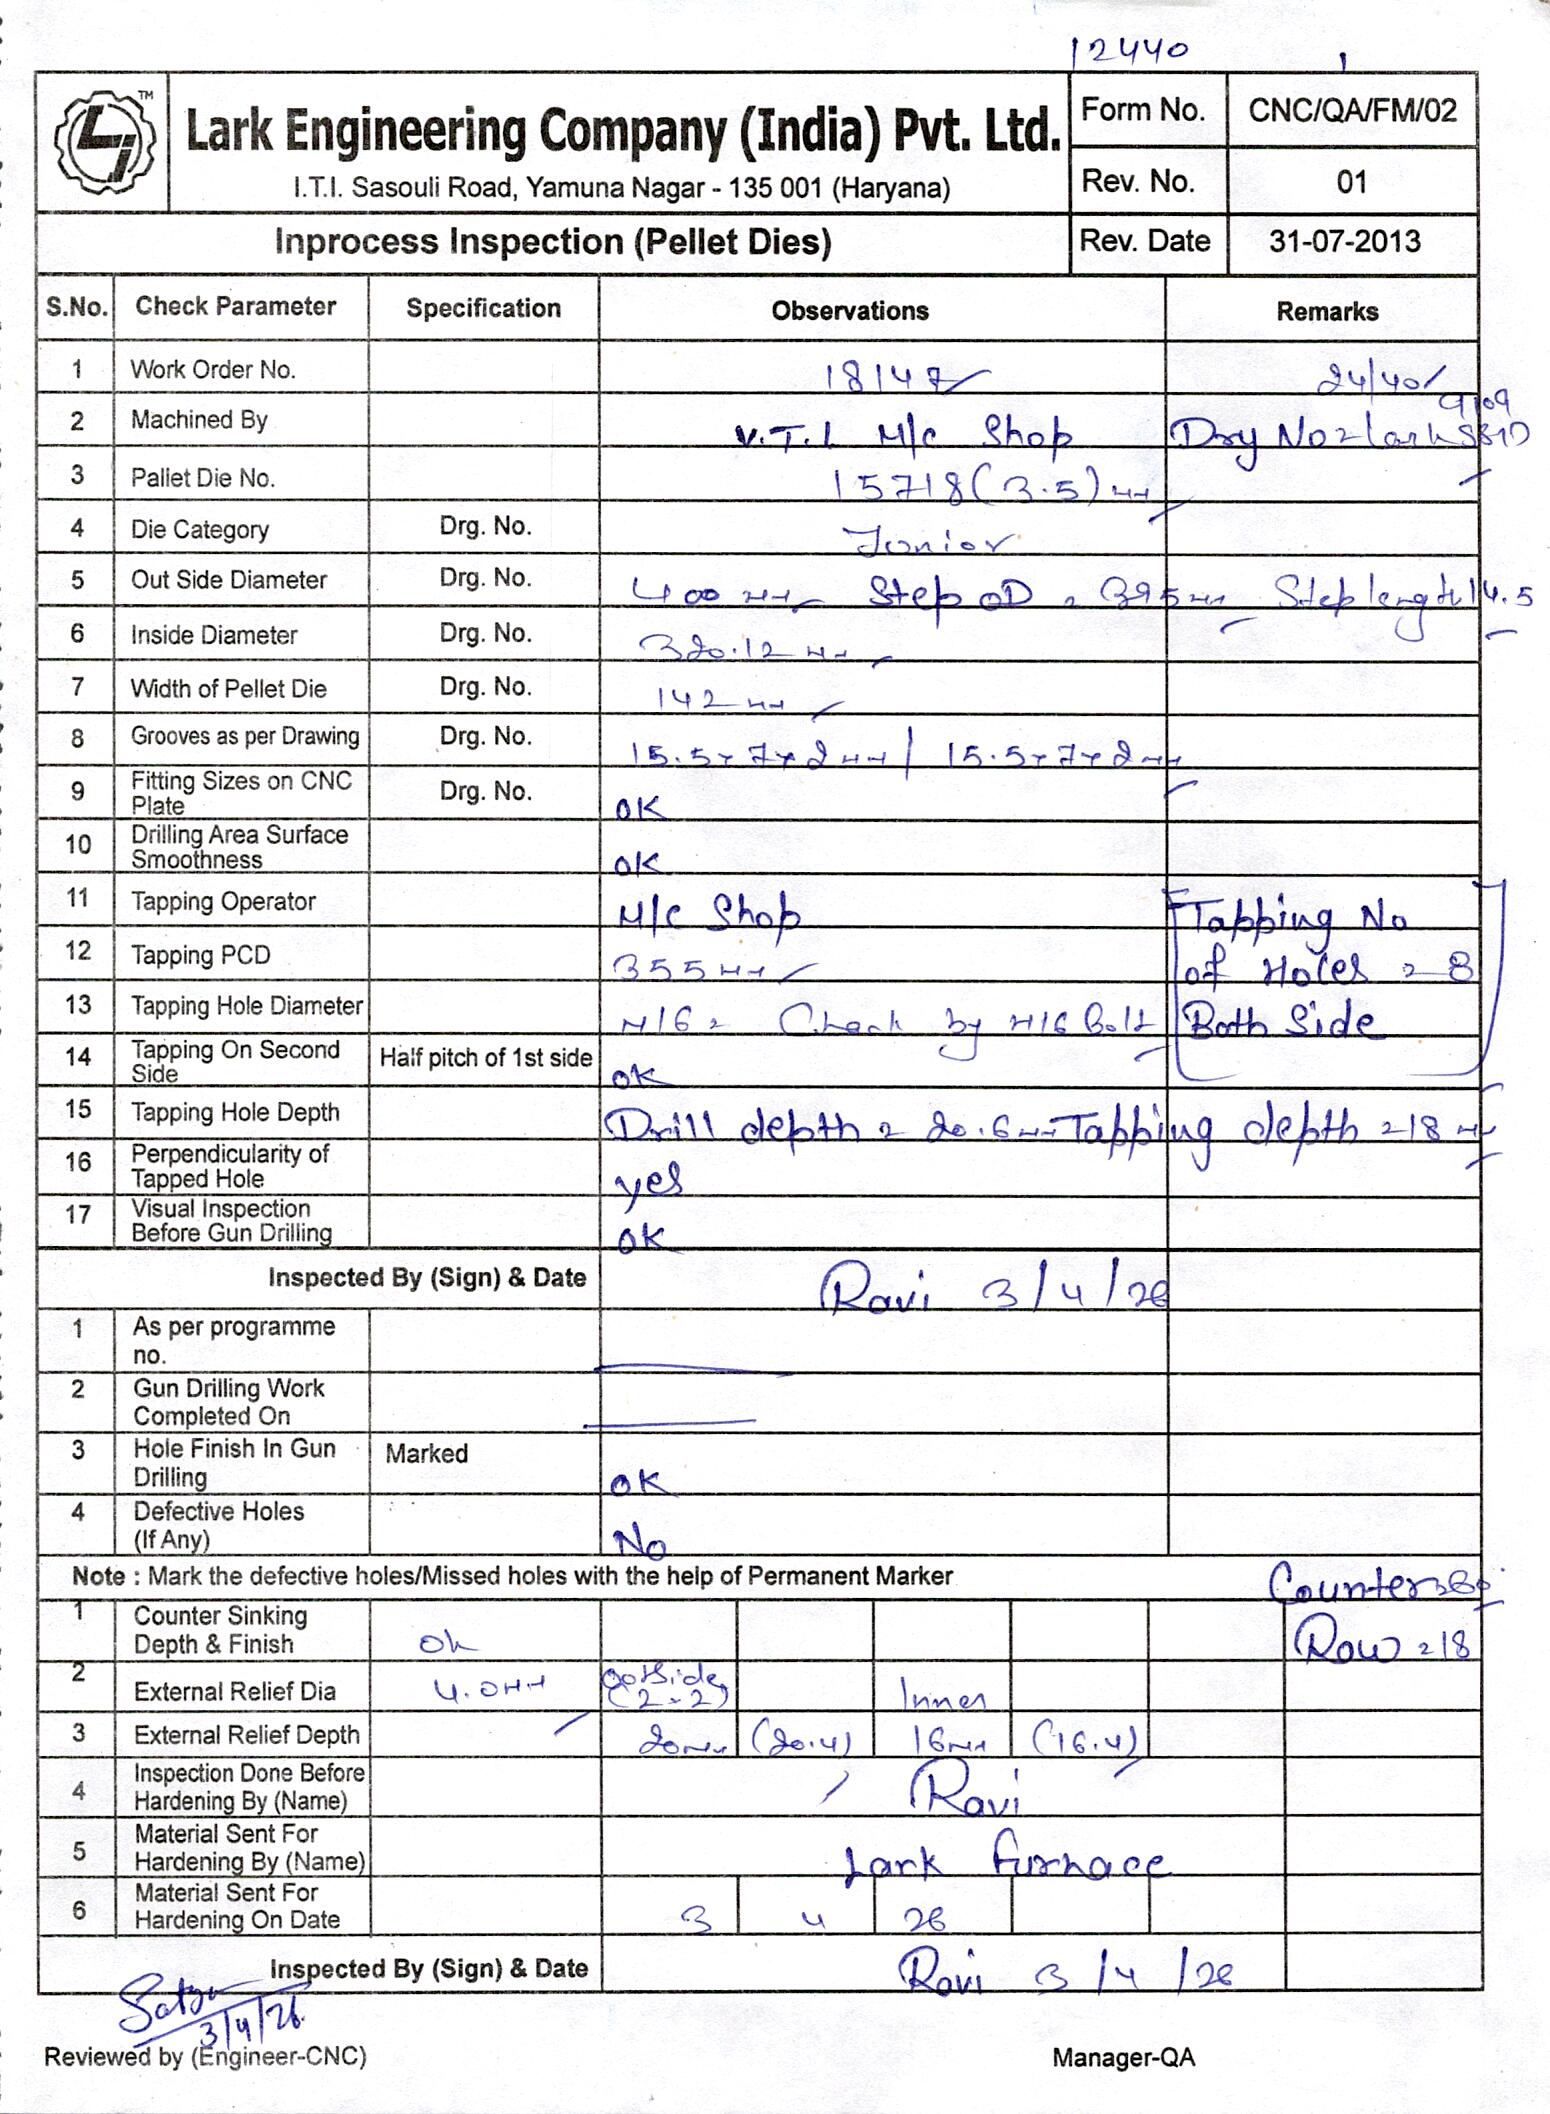 12440
TM
Lark Engineering Company (India) Pvt. Ltd.
I.T.I. Sasouli Road, Yamuna Nagar - 135 001 (Haryana)
Form No. CNC/QA/FM/02
Rev. No. 01
Inprocess Inspection (Pellet Dies) Rev. Date 31-07-2013
S.No. Check Parameter Specification Observations Remarks
1 Work Order No. 18147 24/40/
2 Machined By V.T.L M/c Shop
3 Pallet Die No. 15718(3.5)
4 Die Category Drg. No. Junior
5 Out Side Diameter Drg. No. 400 Step OD = 395 Step length 14.5
6 Inside Diameter Drg. No. 320.12
7 Width of Pellet Die Drg. No. 142
8 Grooves as per Drawing Drg. No. 15.5x7x2 / 15.5x7x2
9 Fitting Sizes on CNC Plate Drg. No. OK
10 Drilling Area Surface Smoothness OK
11 Tapping Operator M/c Shop Tapping No
12 Tapping PCD 355 of Holes = 8
13 Tapping Hole Diameter M16 = Check by M16 Bolt Both Side
14 Tapping On Second Side Half pitch of 1st side OK
15 Tapping Hole Depth Drill depth = 20.6 Tapping depth = 18
16 Perpendicularity of Tapped Hole yes
17 Visual Inspection Before Gun Drilling OK
Inspected By (Sign) & Date Ravi 3/4/26
1 As per programme no.
2 Gun Drilling Work Completed On
3 Hole Finish In Gun Drilling Marked OK
4 Defective Holes (If Any) No
Note : Mark the defective holes/Missed holes with the help of Permanent Marker
1 Counter Sinking Depth & Finish Ok Row = 18
2 External Relief Dia 4.0 Outside (2-2) Inner
3 External Relief Depth 20 (20.4) 16 (16.4)
4 Inspection Done Before Hardening By (Name) Ravi
5 Material Sent For Hardening By (Name) Lark Furnace
6 Material Sent For Hardening On Date 3 4 26
Inspected By (Sign) & Date Ravi 3/4/26
3/4/26
Reviewed by (Engineer-CNC) Manager-QA